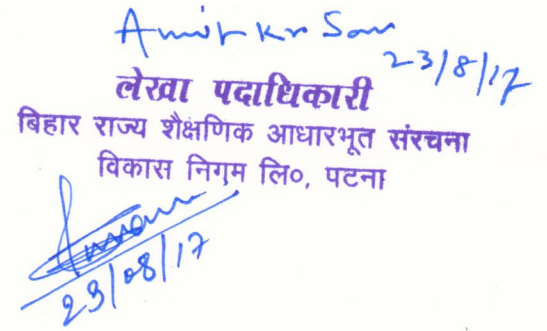 Amit Kr San
23/8/17
लेखा पदाधिकारी
बिहार राज्य शैक्षणिक आधारभूत संरचना
विकास निगम लि०, पटना
23/08/17